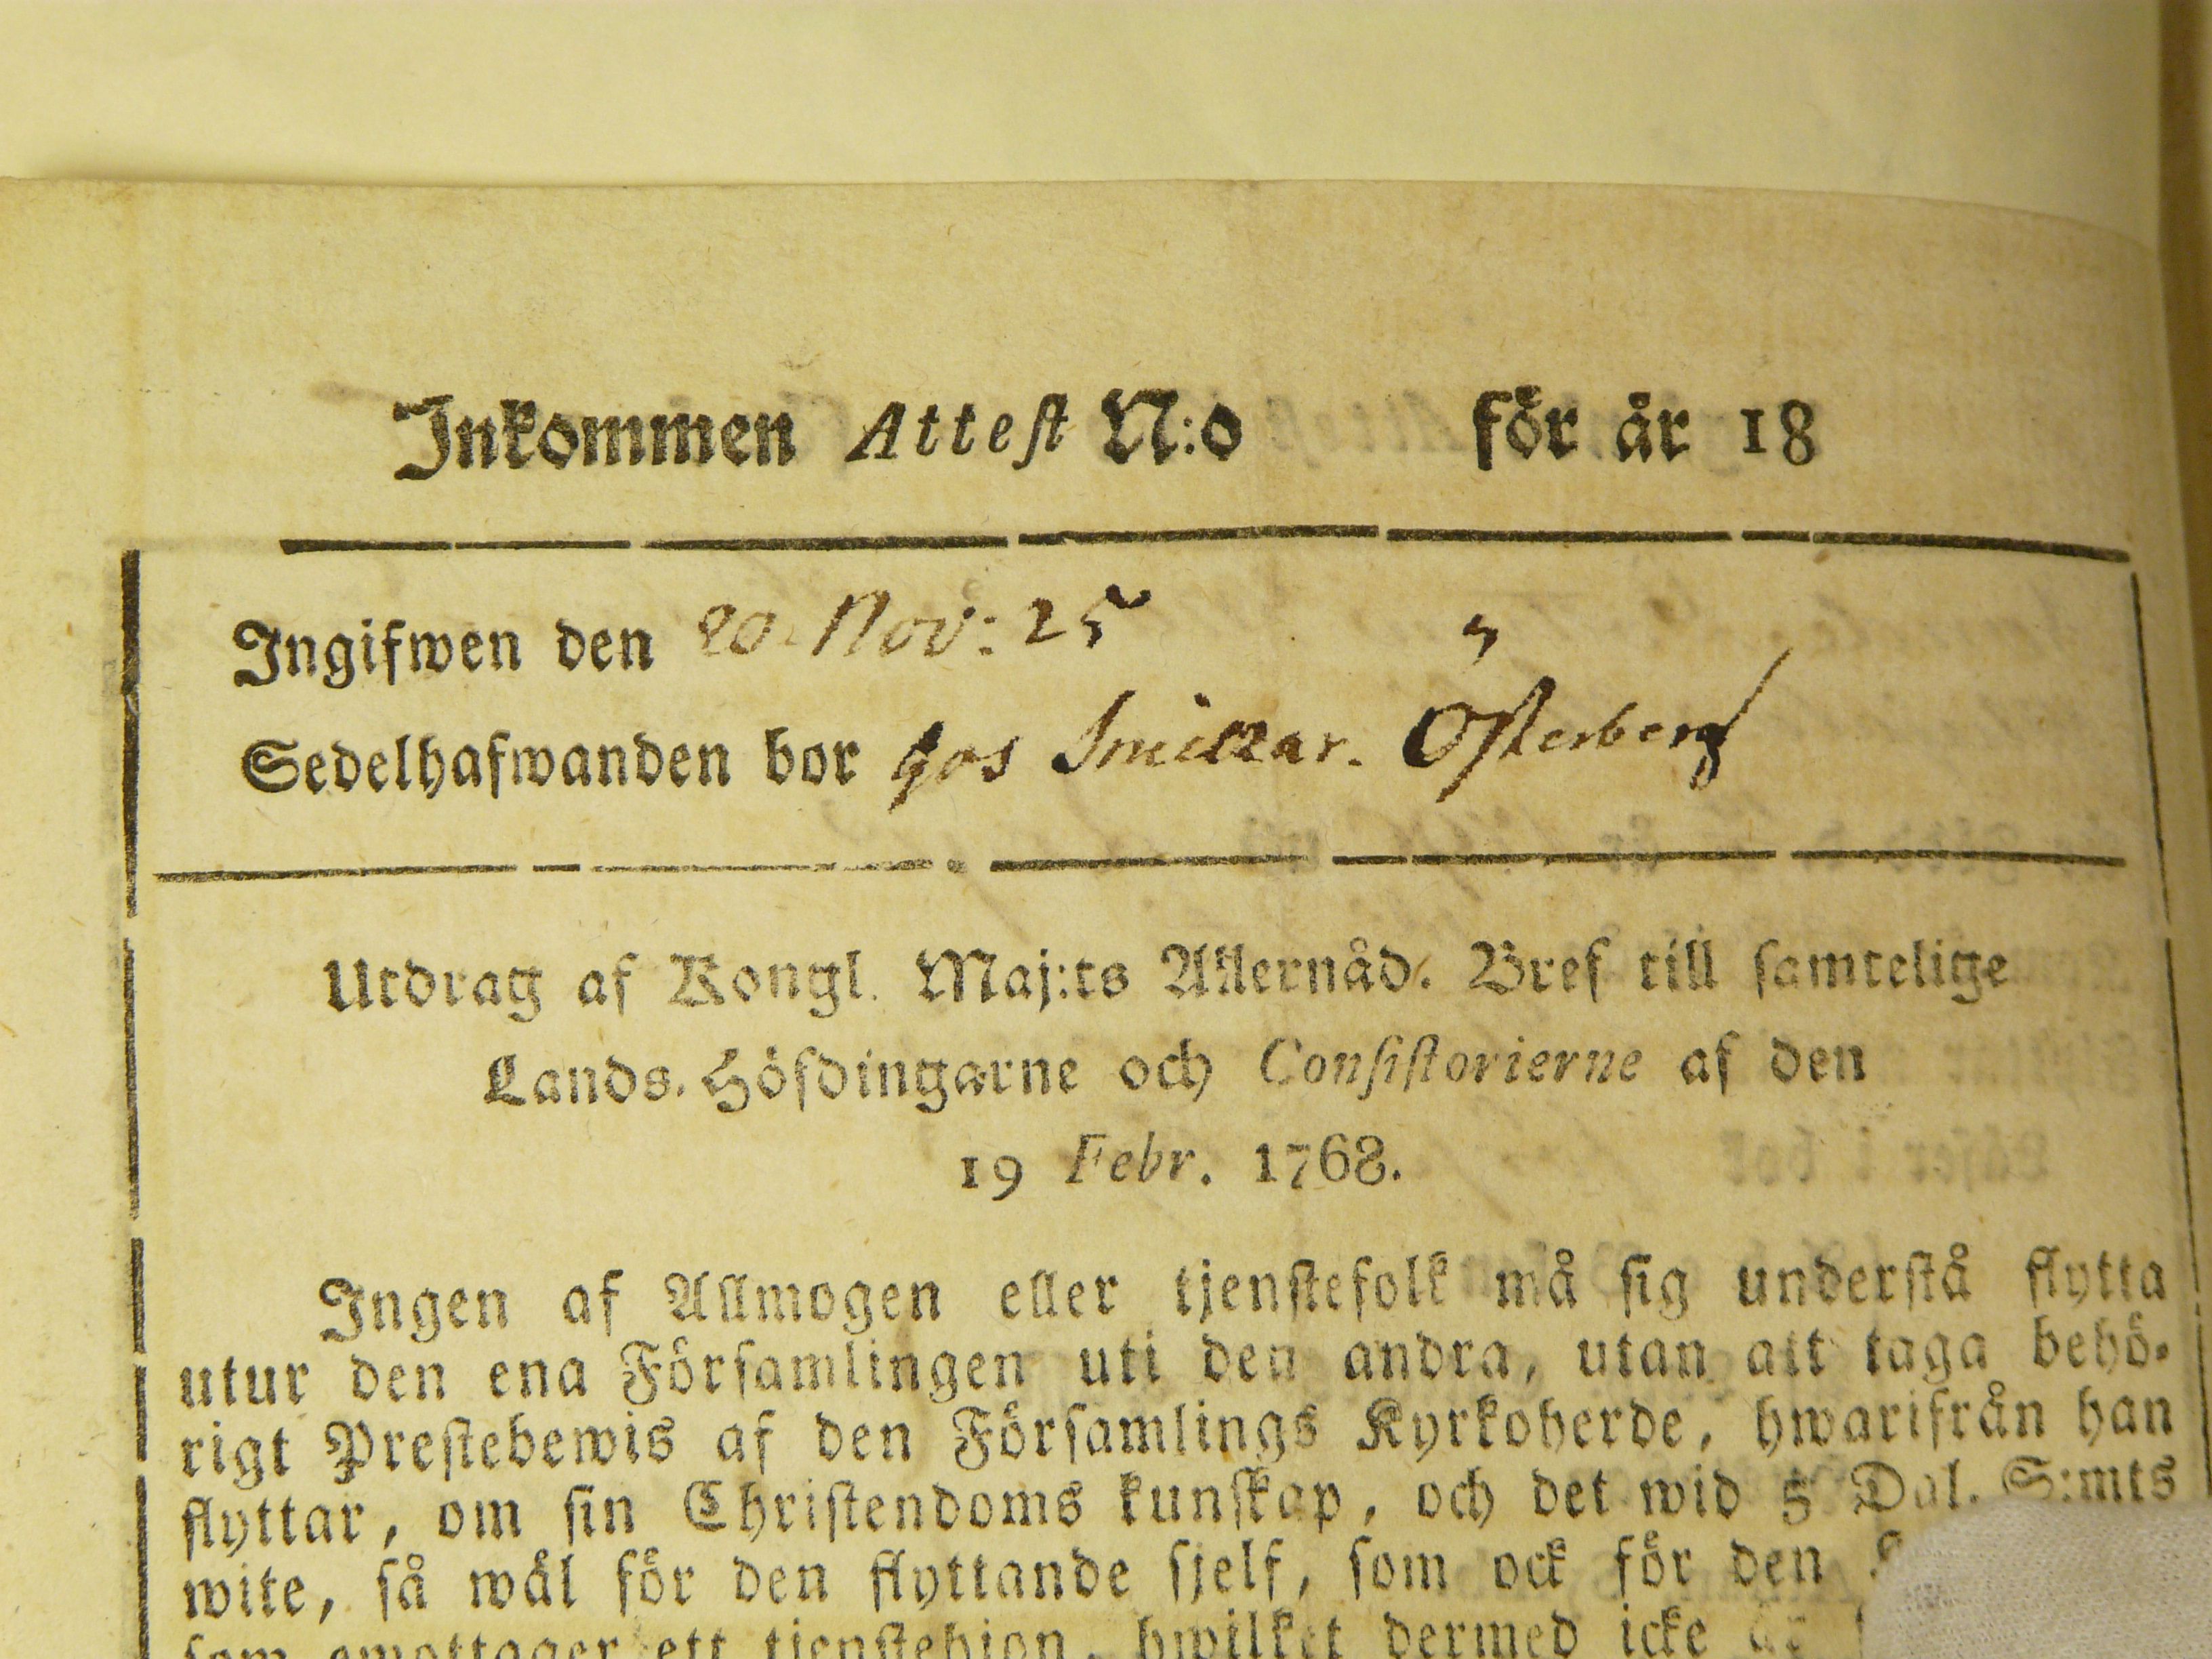 Inkommen Attest N:o för år 18
Ingifwen den 20. Nov: 25
Sedelhafwanden bor hos Österberg
Utdrag af Kongl. Maj:ts Allernåd. Bref till samtelige
Lands-Höfdingarne och Consistorierne af den
19 Febr. 1768.
Ingen af Allmogen eller tjenstefolk må sig understå flytta
utur den ena Församlingen uti den andra, utan att taga behö-
rigt Prestebewis af den Församlings Kyrkoherde, hwarifrån han
flyttar, om sin Christendoms kunskap, och det wid 5 Dal. S:mts
wite, så wäl för den flyttande sjelf, som ock för den
som emottager ett tjenstehjon, hwilket dermed icke